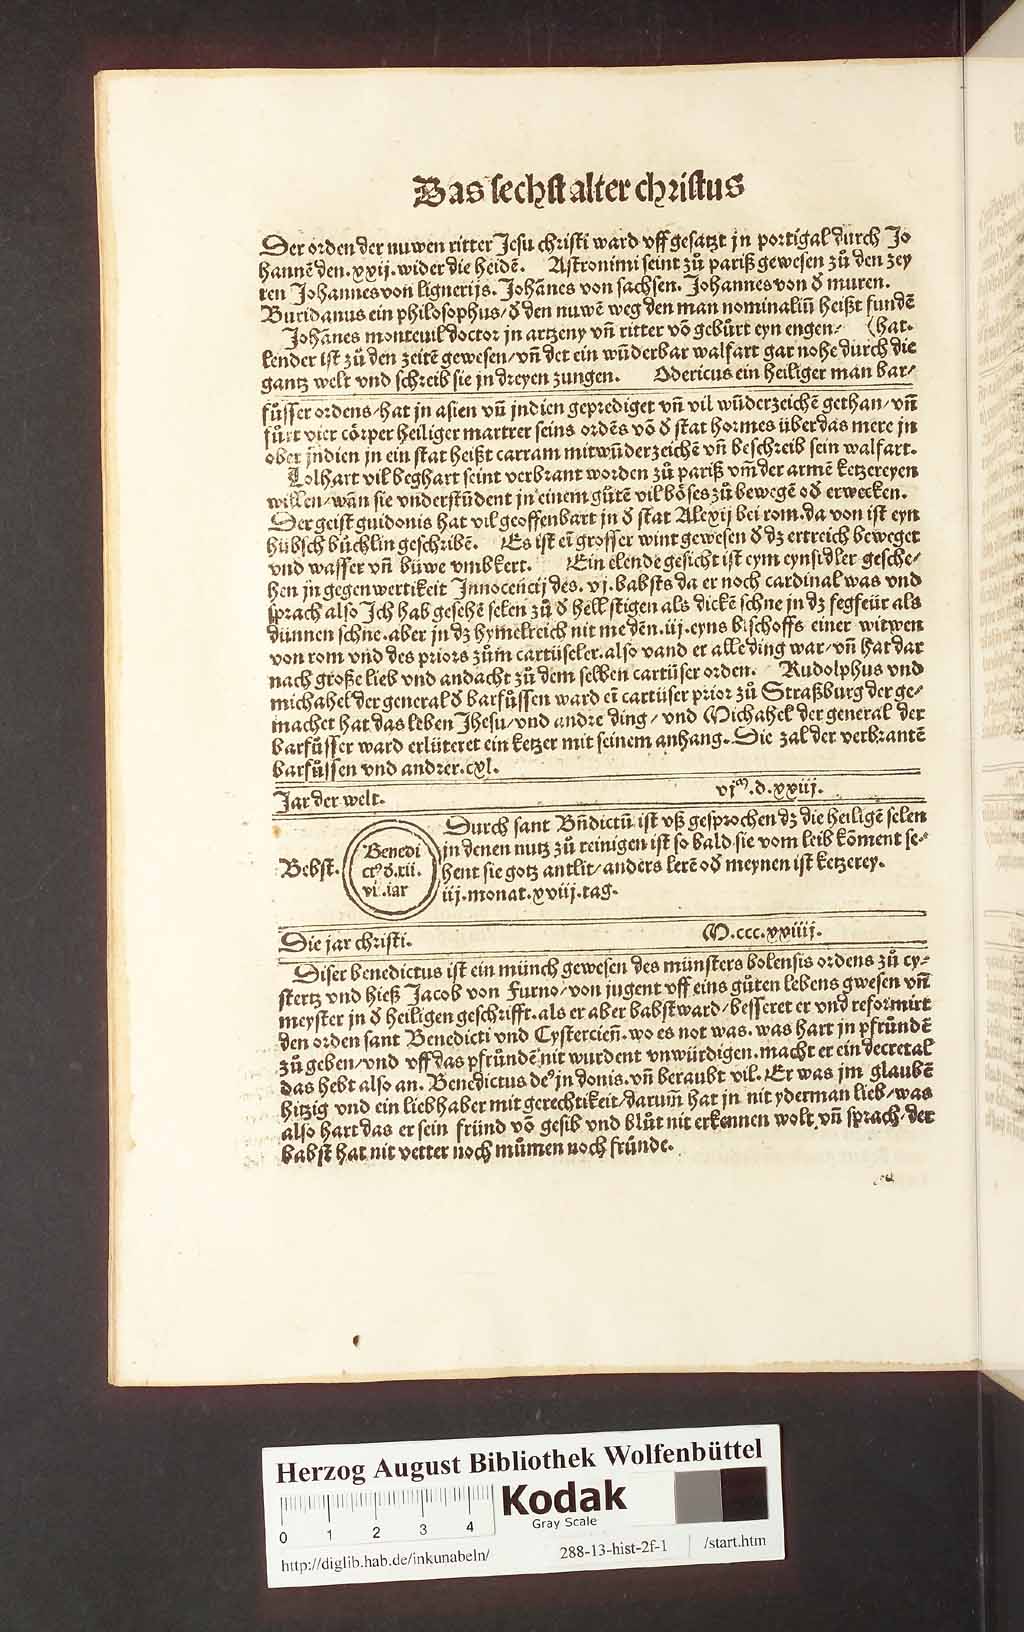 Das sechst alter christus
Der orden der nuwen ritter Jesu christi ward vff gesatzt jn portigal durch Jo
hannē den .xxij. wider die heidē. Astronimi seint zů pariß gewesen zů den zey
ten Johannes von lignerijs. Johānes von sachsen. Johannes von đ muren.
Buridanus ein philosophus/ đ den nuwē weg den man nominaliū heißt fundē
Johānes monteuil doctor jn artzeny vn̄ ritter vō gebürt eyn engen/ (hat.
lender ist zů den zeitē gewesen/ vn̄ det ein wūderbar walfart gar nohe durch die
gantz welt vnd schreib sie jn dreyen zungen. Odericus ein heiliger man bar/
fůsser ordens/ hat jn asien vn̄ jndien geprediget vn̄ vil wūderzeichē gethan/ vn̄
fůrt vier cörper heiliger martrer seins ordēs vō đ stat hormes über das mere jn
ober jndien jn ein stat heißt carram mit wūderzeichē vn̄ beschreib sein walfart.
Lolhart vil beghart seint verbrant worden zů pariß vm̄ der armē ketzereyen
willen/ wān sie vnderstūdent jn einem gůtē vil böses zů bewegē ođ erwecken.
Der geist guidonis hat vil geoffenbart jn đ stat Alexij bei rom. da von ist eyn
hübsch bůchlin geschribē. Es ist eī grosser wint gewesen đ dz ertreich beweget
vnd wasser vn̄ büwe vmbkert. Ein elende gesicht ist eym eynsidler gesche/
hen jn gegenwertikeit Innocencij des .vj. babsts da er noch cardinal was vnd
sprach also Ich hab gesehē selen zů đ hell stigen als dickē schne jn dz fegfeür als
dünnen schne. aber jn dz hymelreich nit me dēn .iij. eyns bischoffs einer witwen
von rom vnd des priors zům cartüseler. also vand er alle ding war/ vn̄ hat dar
nach große lieb vnd andacht zů dem selben cartüser orden. Rudolphus vnd
michahel der general đ barfůssen ward eī cartüser prior zů Straßburg der ge/
machet hat das leben Jhesu/ vnd andre ding/ vnd Michahel der general der
barfůsser ward erlüteret ein ketzer mit seinem anhang. Die zal der verbrantē
barfůssen vnd andrer .cxl.
Jar der welt. vjᵐ.d.xxiij.
Bebst.
Benedi
ctꝰ đ.xii.
vi.iar
Durch sant Bn̄dictū ist vß gesprochen dz die heiligē selen
jn denen nutz zů reinigen ist so bald sie vom leib kōment se/
hent sie gotz antlit/ anders lerē ođ meynen ist ketzerey.
iij. monat. xviij. tag.
Die jar christi. M.ccc.xxiiij.
Diser benedictus ist ein münch gewesen des münsters bolensis ordens zů cy/
stertz vnd hieß Jacob von Furno/ von jugent vff eins gůten lebens gwesen vn̄
meyster jn đ heiligen geschrifft. als er aber babst ward/ besseret er vnd reformirt
den orden sant Benedicti vnd Cystercien̄. wo es not was. was hart jn pfründē
zů geben/ vnd vff das pfründē nit wurdent vnwürdigen. macht er ein decretal
das hebt also an. Benedictus deꝰ jn donis. vn̄ beraubt vil. Er was jm glaubē
hitzig vnd ein liebhaber mit gerechtikeit/ darum̄ hat jn nit yderman lieb/ was
also hart das er sein fründ vō gesib vnd blůt nit erkennen wolt. vn̄ sprach/ der
babst hat nit vetter noch můmen noch fründe.
Herzog August Bibliothek Wolfenbüttel
0 1 2 3 4
Kodak
Gray Scale
http://diglib.hab.de/inkunabeln/ 288-13-hist-2f-1 /start.htm